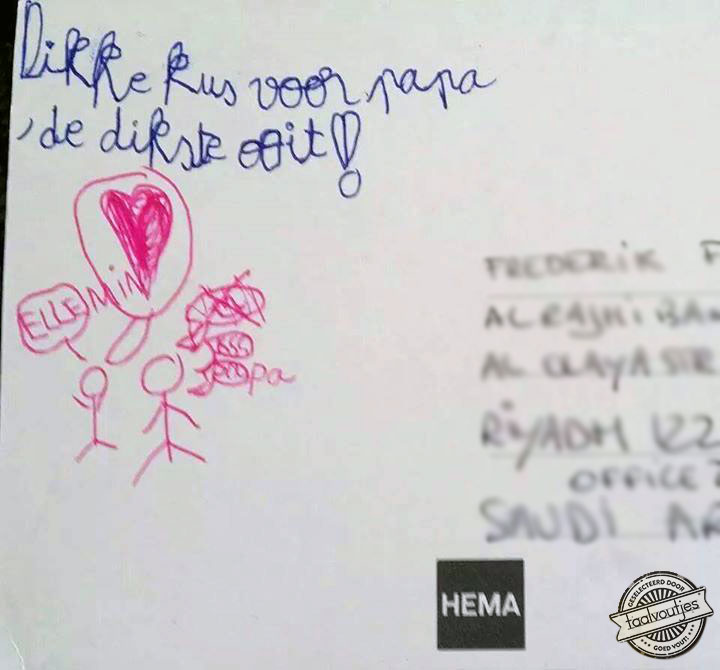 Dikke kus voor papa
, de dikste ooit!
MIN
ELLE
pa
FREDERIK F
AL RAJHI BAN
AL OLAYA STR
RIYADH 122
OFFICE
SAUDI AR
HEMA
GESELECTEERD DOOR
taalvoutjes
GOED VOUT!